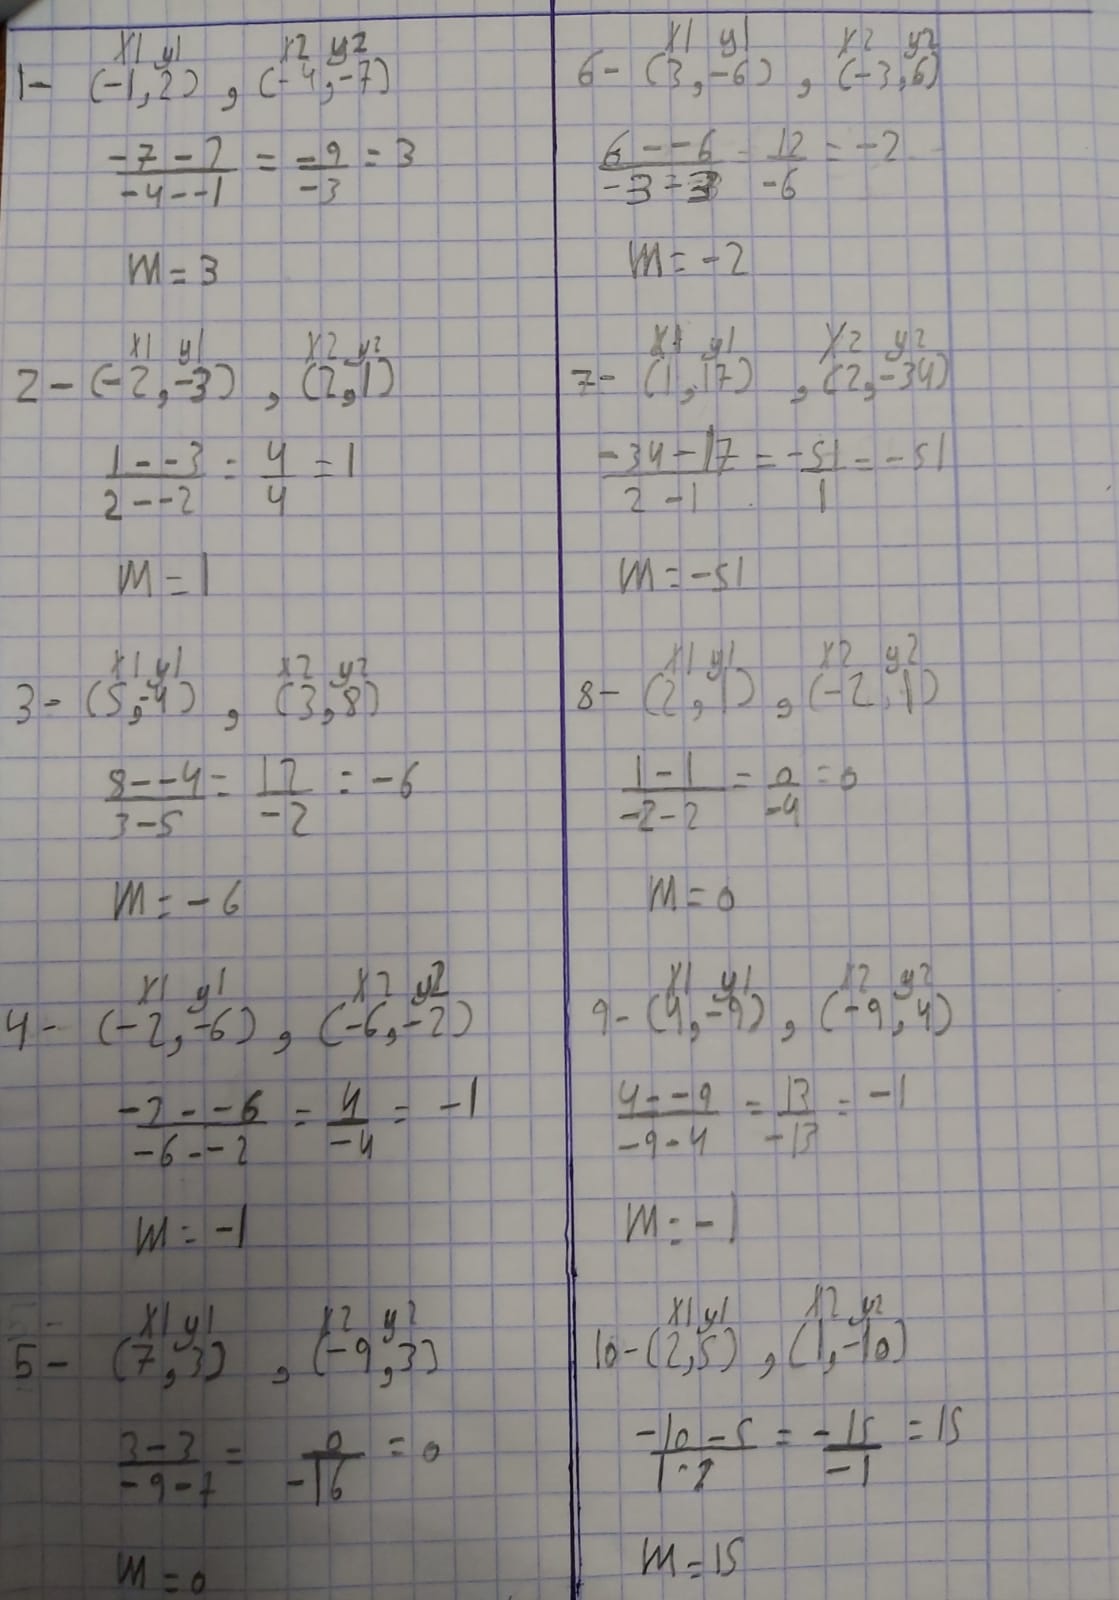 x1 y1 x2 y2
1- (-1,2) , (-4,-7)
-7-2/-4--1 = -9/-3 = 3
m=3
x1 y1 x2 y2
2- (-2,-3) , (2,1)
1--3/2--2 = 4/4 = 1
m=1
x1 y1 x2 y2
3- (5,-4) , (3,8)
8--4/3-5 = 12/-2 = -6
m=-6
x1 y1 x2 y2
4- (-2,-6) , (-6,-2)
-2--6/-6--2 = 4/-4 = -1
m=-1
x1 y1 x2 y2
5- (7,3) , (-9,3)
3-3/-9-7 = 0/-16 = 0
m=0
x1 y1 x2 y2
6- (3,-6) , (-3,6)
6--6/-3-3 = 12/-6 = -2
m=-2
x1 y1 x2 y2
7- (1,17) , (2,-34)
-34-17/2-1 = -51/1 = -51
m=-51
x1 y1 x2 y2
8- (2,1) , (-2,1)
1-1/-2-2 = 0/-4 = 0
m=0
x1 y1 x2 y2
9- (4,-9) , (-9,4)
4--9/-9-4 = 13/-13 = -1
m=-1
x1 y1 x2 y2
10- (2,5) , (1,-10)
-10-5/1-2 = -15/-1 = 15
m=15